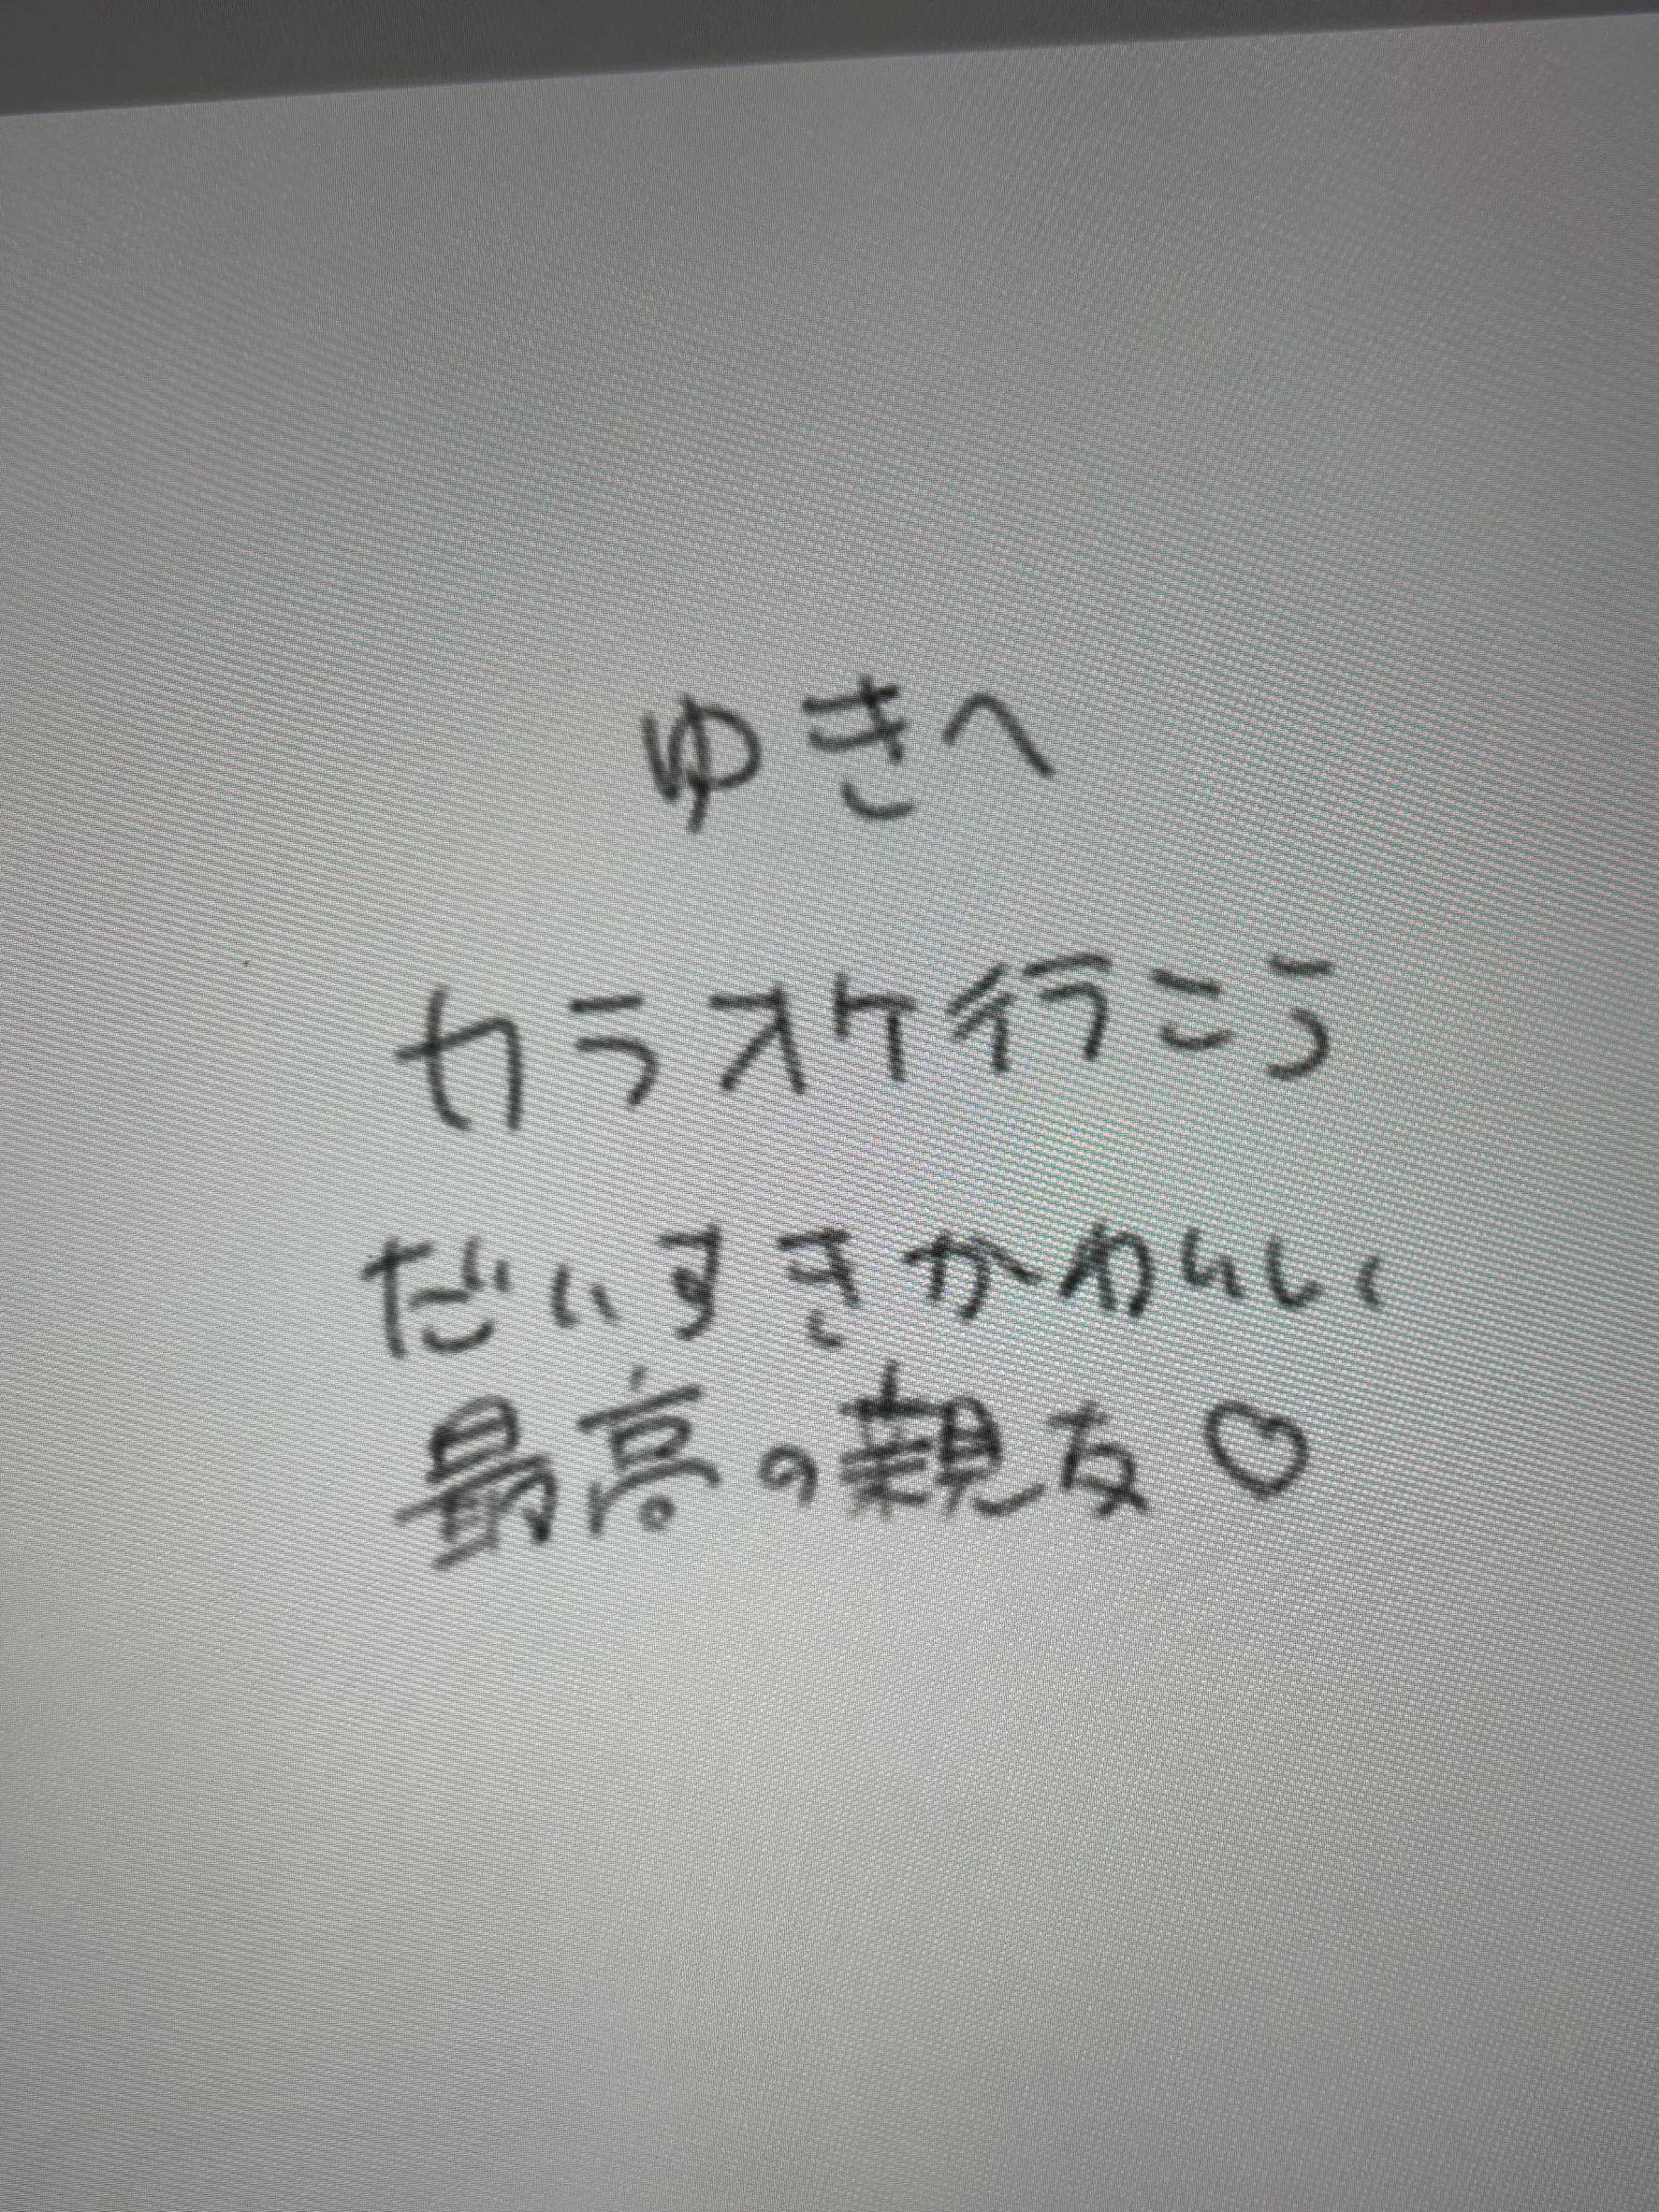 ゆきへ
カラオケ行こう
だいすきかわいい
最高の親友♡